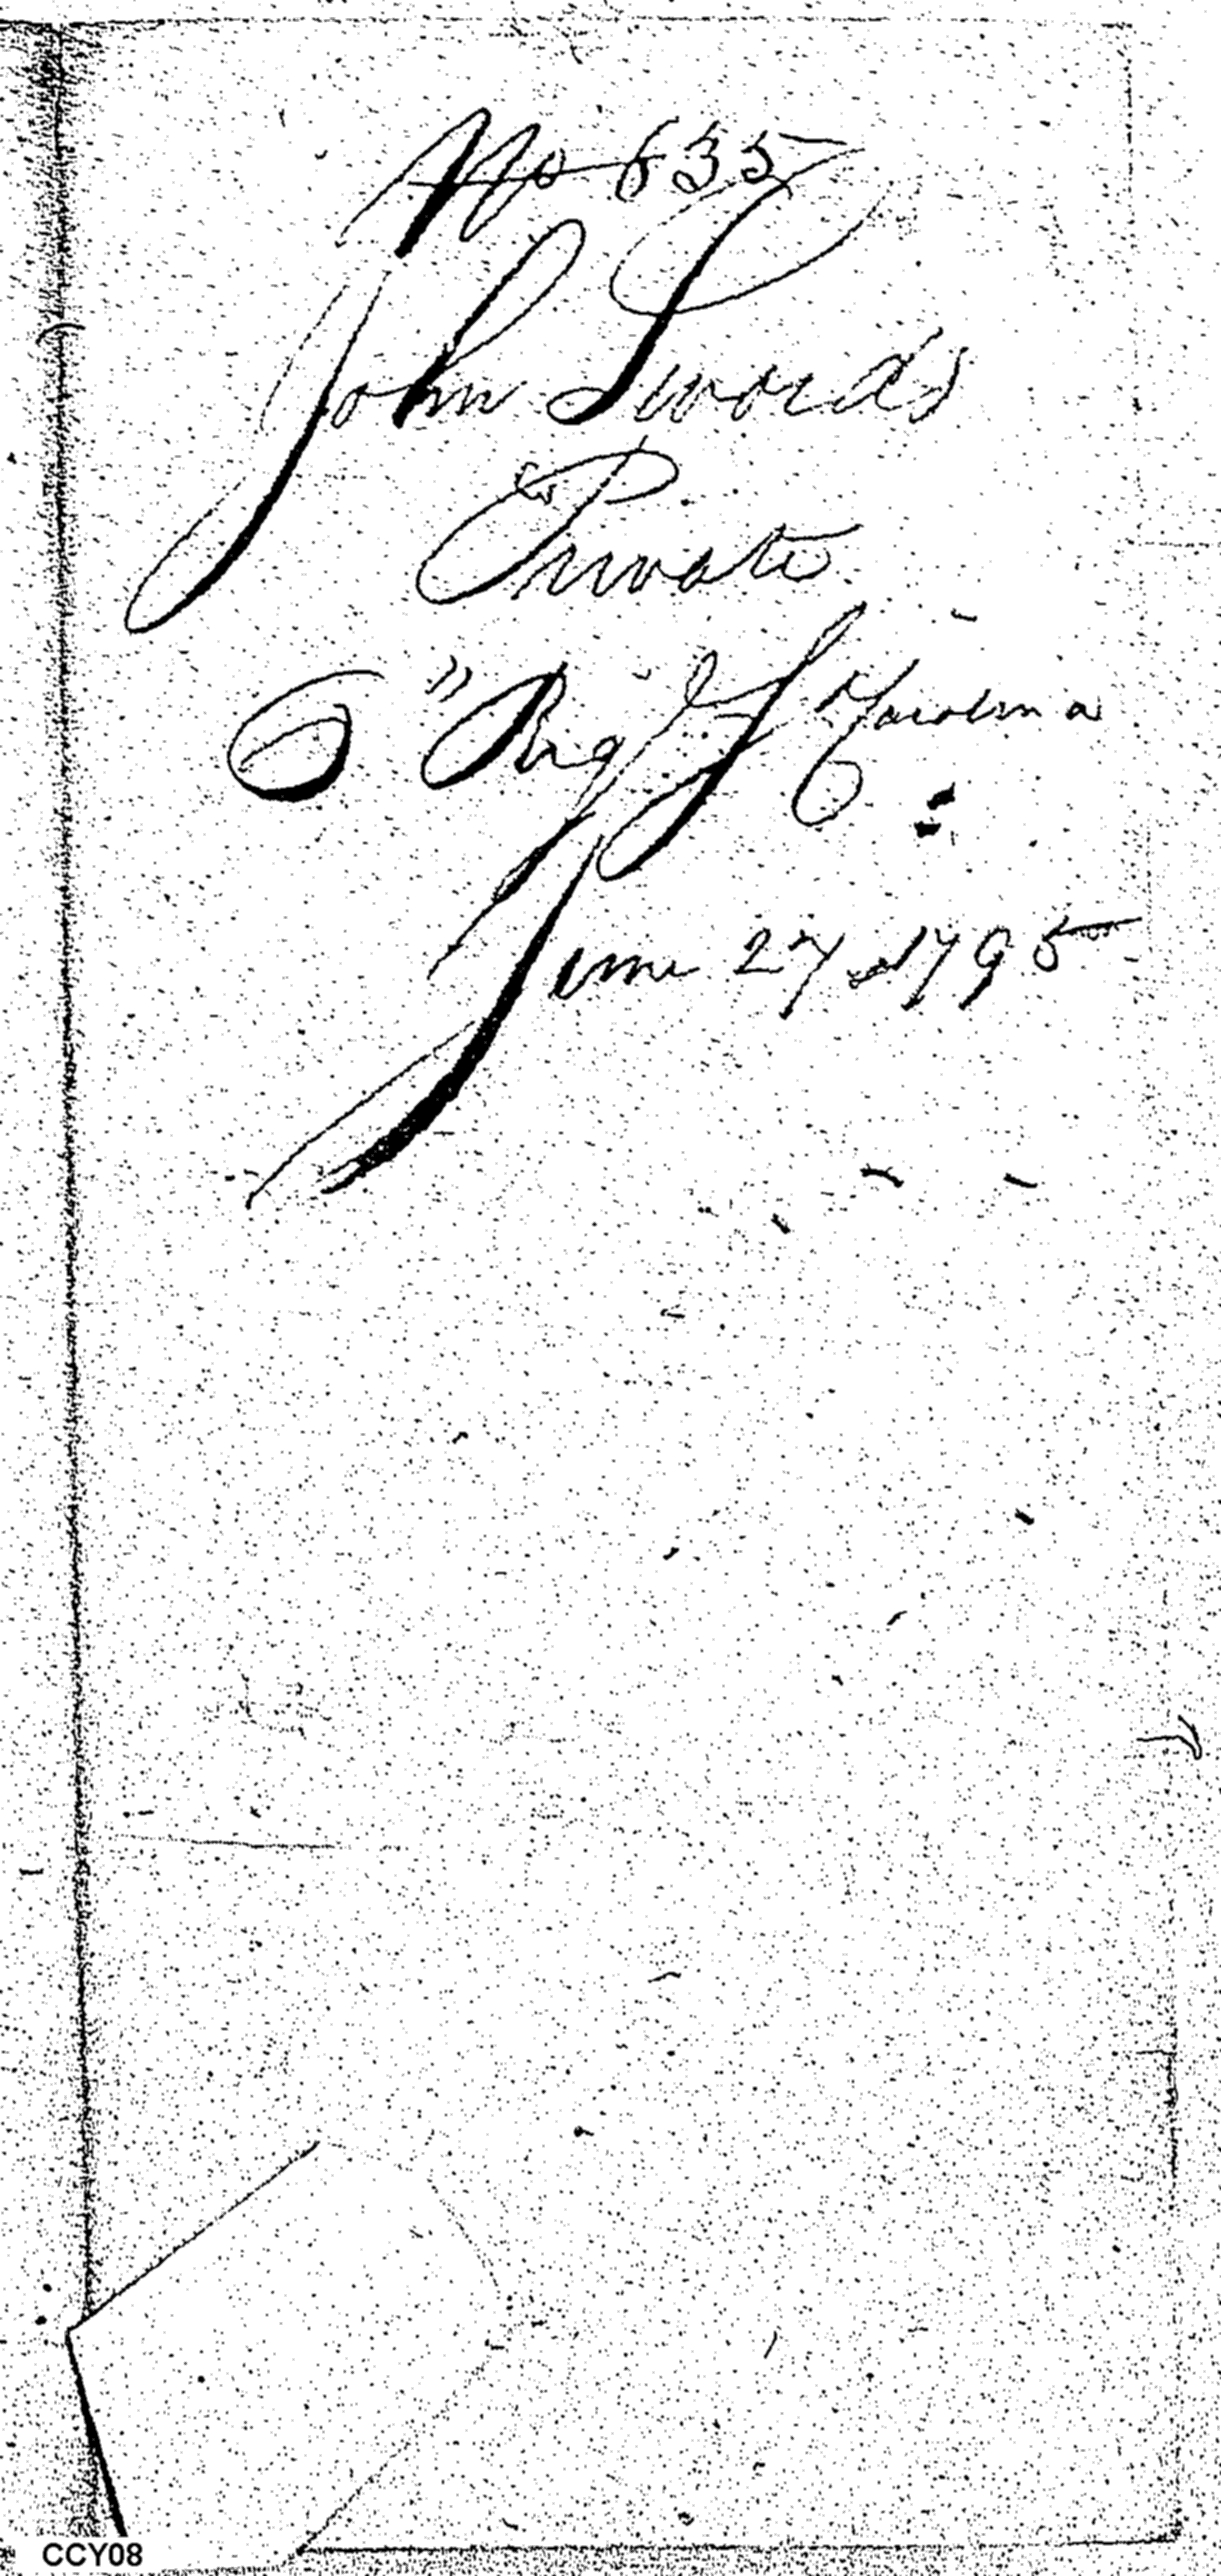 No 635
John Swords
Private
6" Reg S Carolina
June 27 1795
CCY08